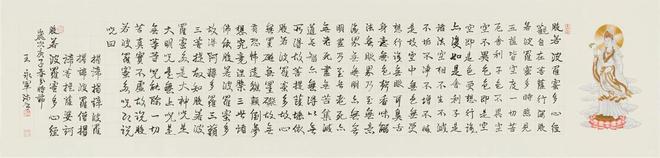 般若波羅蜜多心經
觀自在菩薩行深般
若波羅蜜多時照見
五蘊皆空度一切苦
厄舍利子色不異空
空不異色色即是空
空即是色受想行識
亦復如是舍利子是
諸法空相不生不滅
不垢不淨不增不減
是故空中無色無受
想行識無眼耳鼻舌
身意無色聲香味觸
法無眼界乃至無意
識界無無明亦無無
明盡乃至無老死亦
無老死盡無苦集滅
道無智亦無得以無
所得故菩提薩埵依
般若波羅蜜多故心
無罣礙無罣礙故無
有恐怖遠離顛倒夢
想究竟涅槃三世諸
佛依般若波羅蜜多
故得阿耨多羅三藐
三菩提故知般若波
羅蜜多是大神咒是
大明咒是無上咒是
無等等咒能除一切
苦真實不虛故說般
若波羅蜜多咒即說
咒曰
揭諦揭諦波羅
揭諦波羅僧揭
諦菩提薩婆訶
般若波羅蜜多心經
歲次庚子春
王永軍